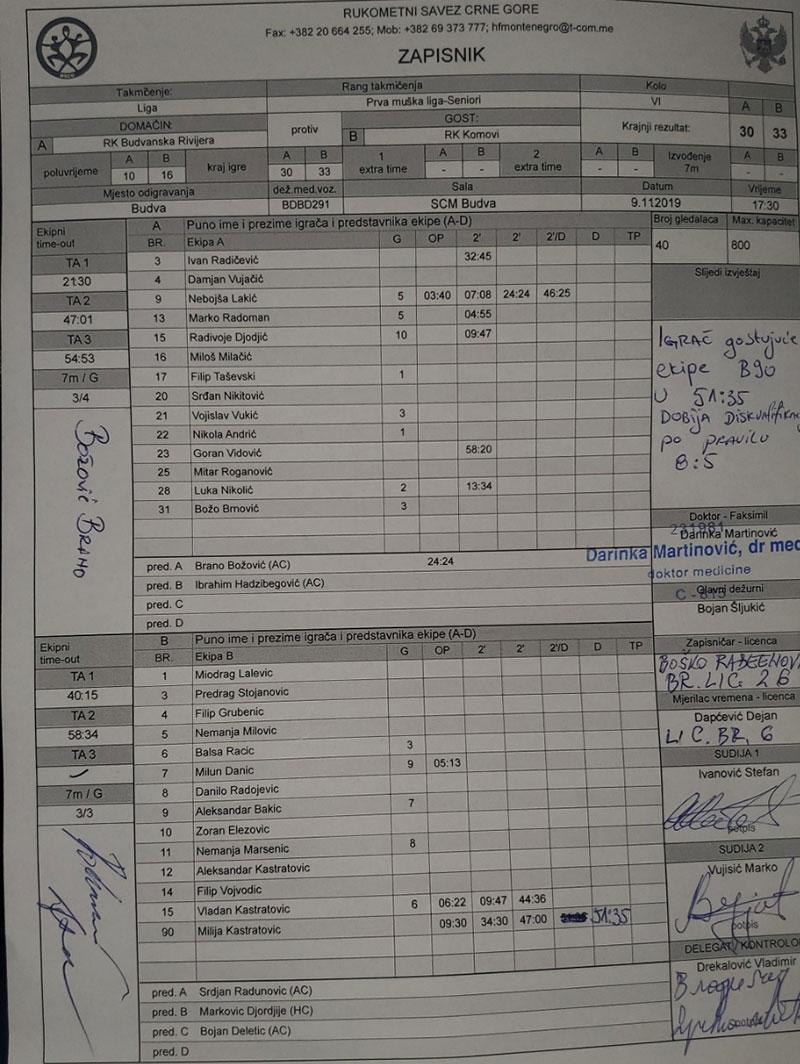 RUKOMETNI SAVEZ CRNE GORE
Fax: +382 20 664 255; Mob: +382 69 373 777; hfmontenegro@t-com.me
ZAPISNIK
Takmčenje: Rang takmičenja Kolo
Liga Prva muška liga-Seniori VI A B
DOMAĆIN: protiv GOST: Krajnji rezultat: 30 33
A RK Budvanska Rivijera B RK Komovi
poluvrijeme A B kraj igre A B 1 extra time A B 2 extra time A B Izvođenje 7m A B
10 16 30 33 - - - - - -
Mjesto odigravanja dež.med.voz. Sala Datum Vrijeme
Budva BDBD291 SCM Budva 9.11.2019 17:30
Ekipni time-out A Puno ime i prezime igrača i predstavnika ekipe (A-D) Broj gledalaca Max. kapacitet
BR. Ekipa A G OP 2' 2' 2'/D D TP 40 800
TA 1 3 Ivan Radičević 32:45
21:30 4 Damjan Vujačić Slijedi izvještaj
TA 2 9 Nebojša Lakić 5 03:40 07:08 24:24 46:25
47:01 13 Marko Radoman 5 04:55
TA 3 15 Radivoje Djodjić 10 09:47 IGRAČ gostujuće
54:53 16 Miloš Milačić ekipe B90
7m / G 17 Filip Taševski 1 U 51:35
3/4 20 Srđan Nikitović DOBIJA
21 Vojislav Vukić 3 po PRAVILU
22 Nikola Andrić 1 8:5
23 Goran Vidović 58:20
25 Mitar Roganović
28 Luka Nikolić 2 13:34
31 Božo Brnović 3
BOŽOVIĆ BRANO
Doktor - Faksimil
Darinka Martinović
Darinka Martinović, dr med
doktor medicine
pred. A Brano Božović (AC) 24:24
pred. B Ibrahim Hadzibegović (AC)
pred. C
pred. D
Glavni dežurni
Bojan Šljukić
Ekipni time-out B Puno ime i prezime igrača i predstavnika ekipe (A-D) Zapisničar - licenca
BR. Ekipa B G OP 2' 2' 2'/D D TP BOŠKO
TA 1 1 Miodrag Lalevic BR. LIC. 26
40:15 3 Predrag Stojanovic Mjerilac vremena - licenca
TA 2 4 Filip Grubenic Dapčević Dejan
58:34 5 Nemanja Milovic LIC. BR. 6
TA 3 6 Balsa Racic 3 SUDIJA 1
7 Milun Danic 9 05:13 Ivanović Stefan
7m / G 8 Danilo Radojevic
3/3 9 Aleksandar Bakic 7 potpis
10 Zoran Elezovic
11 Nemanja Marsenic 8 SUDIJA 2
12 Aleksandar Kastratovic Vujisić Marko
14 Filip Vojvodic
15 Vladan Kastratovic 6 06:22 09:47 44:36
90 Milija Kastratovic 09:30 34:30 47:00 51:35 potpis
DELEGAT/KONTROLO
Drekalović Vladimir
pred. A Srdjan Radunovic (AC)
pred. B Markovic Djordjije (HC)
pred. C Bojan Deletic (AC)
pred. D